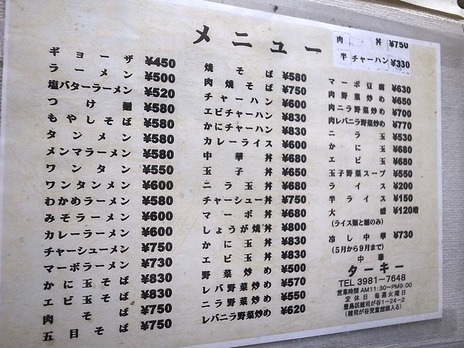 メニュー
肉丼 ¥750
半チャーハン ¥330
ギョーザ ¥450
ラーメン ¥500
塩バターラーメン ¥520
つけ麺 ¥580
もやしそば ¥580
タンメン ¥580
メンマラーメン ¥580
ワンタン ¥550
ワンタンメン ¥600
わかめラーメン ¥580
みそラーメン ¥600
カレーラーメン ¥600
チャーシューメン ¥750
マーボラーメン ¥730
かに玉そば ¥830
エビ玉そば ¥830
肉そば ¥750
五目そば ¥750
焼そば ¥580
肉焼そば ¥750
チャーハン ¥600
エビチャーハン ¥830
かにチャーハン ¥830
カレーライス ¥600
中華丼 ¥680
玉子丼 ¥650
ニラ玉丼 ¥680
チャーシュー丼 ¥750
マーボ丼 ¥680
しょうが焼丼 ¥800
かに玉丼 ¥830
エビ玉丼 ¥830
野菜炒め ¥500
レバ野菜炒め ¥570
ニラ野菜炒め ¥550
レバニラ野菜炒め ¥620
マーボ豆腐 ¥630
肉野菜炒め ¥650
肉ニラ野菜炒め ¥700
肉レバニラ野菜炒め ¥770
ニラ玉 ¥530
かに玉 ¥680
エビ玉 ¥680
玉子野菜スープ ¥550
ライス ¥200
半ライス ¥150
大盛 ¥120増
(ライス類と麺のみ)
冷し中華 ¥730
(5月から9月まで)
中華
ターキー
TEL 3981-7648
営業時間 AM11:30~PM9:00
定休日 毎週火曜日
豊島区雑司が谷1-24-2
(雑司が谷児童館横入る)